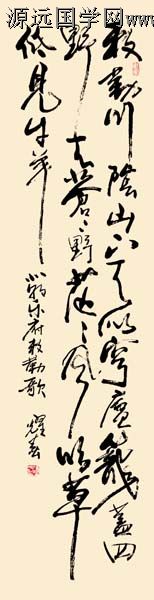 源远国学网www.
敕勒川陰山下天似穹廬籠蓋四
野天蒼々野茫々風吹草
低見牛羊
北朝乐府敕勒歌